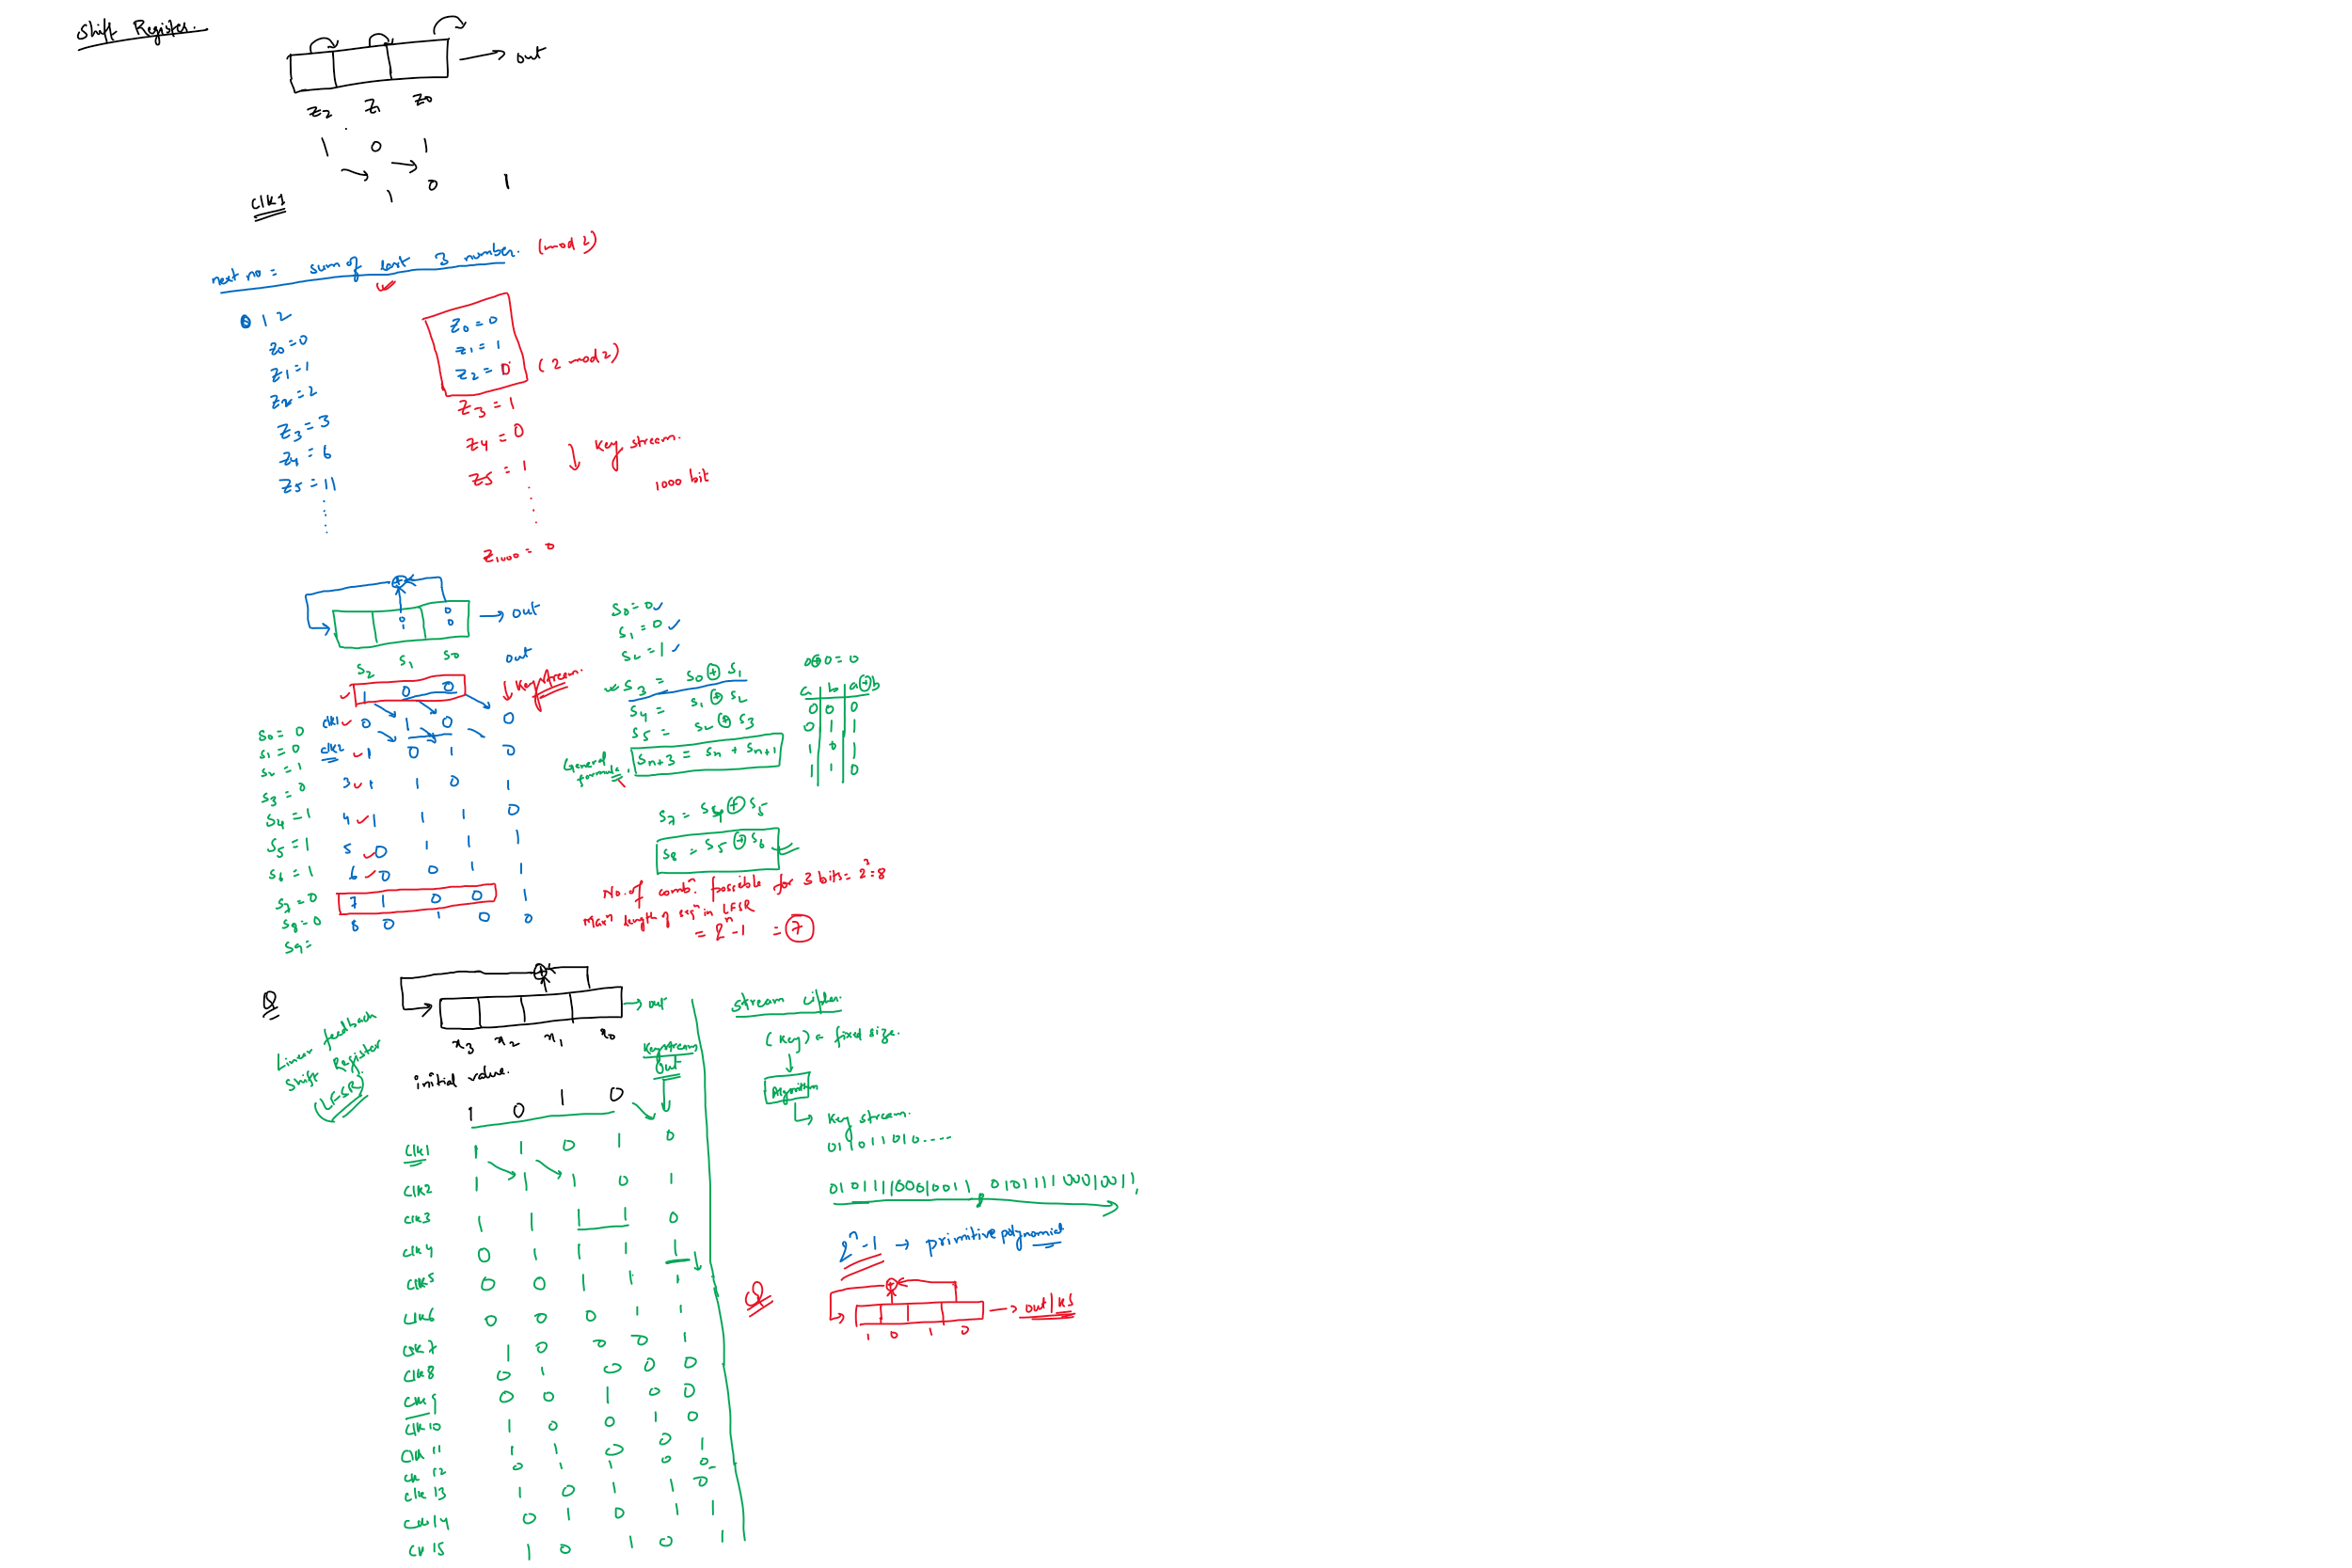 Shift Register.
→ out
Z2 Z1 Z0
1 0 1
1 0 1
Clk1
next no = sum of last 3 number. (mod 2)
0 1 2
Z0 = 0
Z1 = 1
Z2 = 2
Z3 = 3
Z4 = 6
Z5 = 11
Z0 = 0
Z1 = 1
Z2 = 0 (2 mod 2)
Z3 = 1
Z4 = 0
Z5 = 1
Key stream.
1000 bit
Z1000 = 0
+
0
0 0
1
→ out
S2 S1 S0
out
Keystream.
1 0 0
clk1 0 1 0 0
clk2 1 0 1 0
3 1 1 0 1
4 1 1 1 0
5 0 1 1 1
6 0 0 1 1
7 1 0 0 1
8 0 1 0 0
S0 = 0
S1 = 0
S2 = 1
S3 = 0
S4 = 1
S5 = 1
S6 = 1
S7 = 0
S8 = 0
S9 =
S0 = 0
S1 = 0
S2 = 1
S3 = S0 ⊕ S1
S4 = S1 ⊕ S2
S5 = S2 ⊕ S3
General formula. Sn+3 = Sn + Sn+1
0⊕0 = 0
a b a⊕b
0 0 0
0 1 1
1 0 1
1 1 0
S7 = S4 ⊕ S5
S8 = S5 ⊕ S6
No. of combn. possible for 3 bits = 2^3 = 8
Maxm length of seqn in LFSR
= 2^n - 1 = 7
Q
Linear feedback
Shift Register
(LFSR)
+
→ out
x3 x2 x1 x0
initial value.
Keystream
Out
1 0 1 0
Clk1 1 1 0 1 0
Clk2 1 1 1 0 1
Clk3 1 1 1 1 0
Clk4 0 1 1 1 1
Clk5 0 0 1 1 1
Clk6 0 0 0 1 1
Clk7 1 0 0 0 1
Clk8 0 1 0 0 0
Clk9 0 0 1 0 0
Clk10 1 0 0 1 0
Clk11 1 1 0 0 1
Clk12 0 1 1 0 0
Clk13 1 0 1 1 0
Clk14 0 1 0 1 1
Clk15 1 0 1 0 1
stream cipher.
(Key) a fixed size.
Algorithm
Key stream.
01 1 0 1 1 0 1 0 ....
010111100010011, 010111100010011,
2^n - 1 → primitive polynomial
Q
+
1 0 1 0
→ out/KS